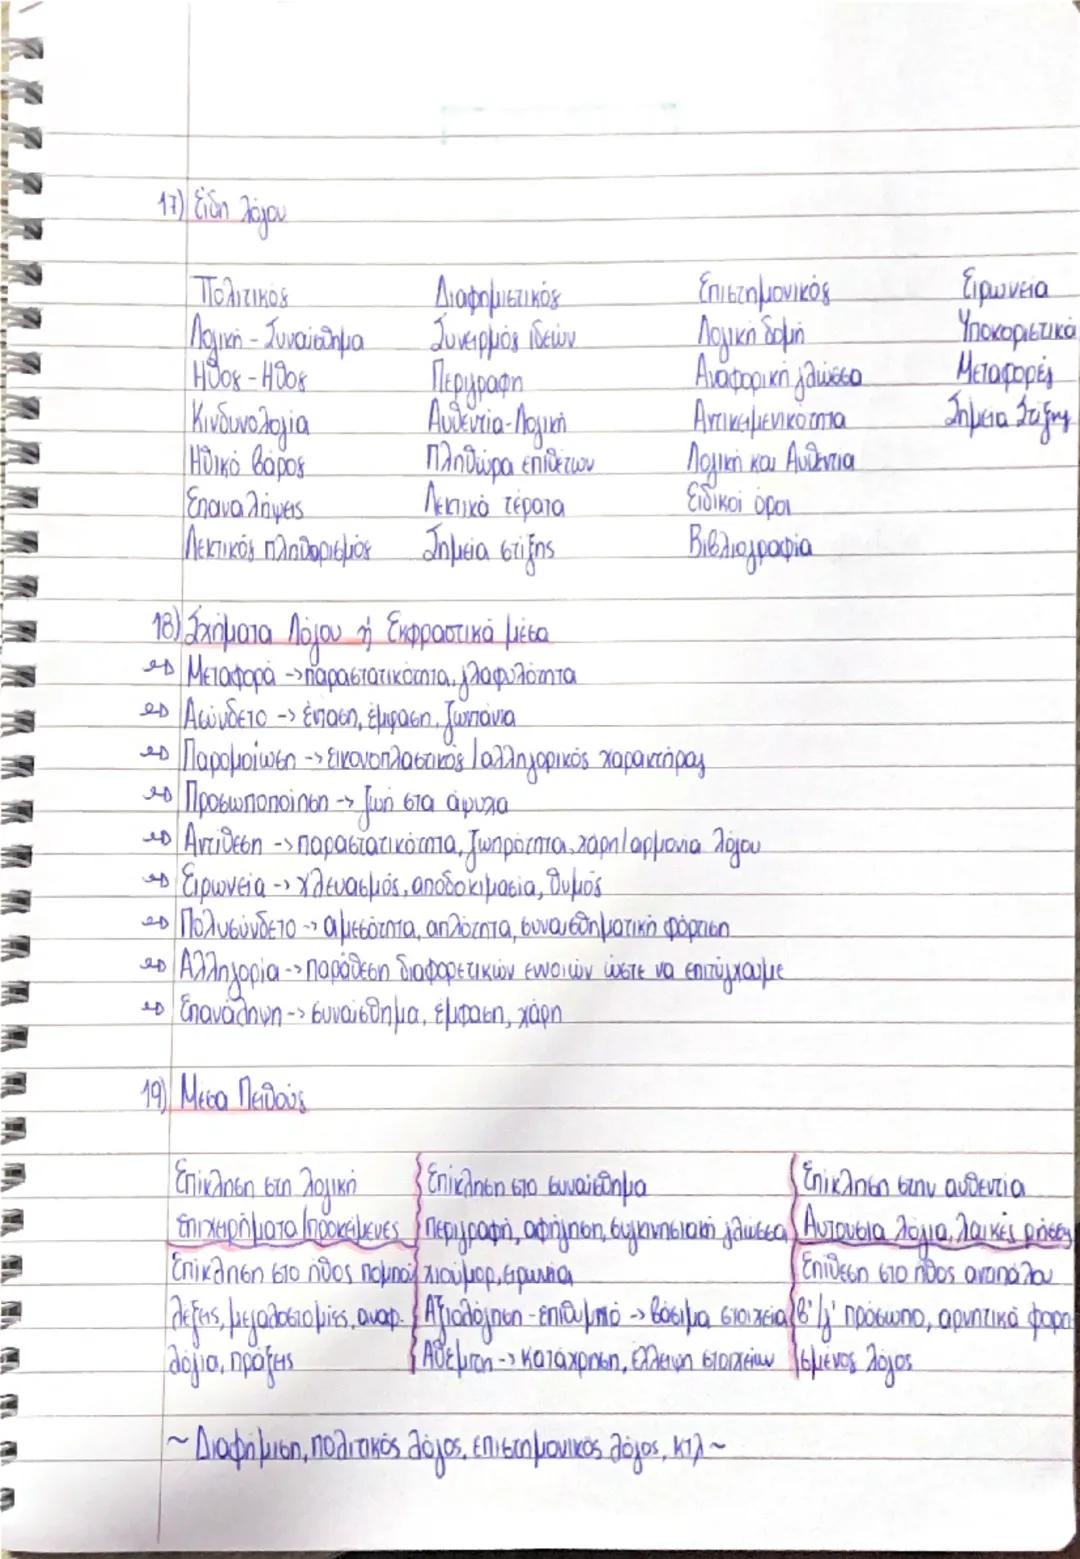 17) Είδη λόγου
Πολιτικός Διαφημιστικός Επιστημονικός Ειρωνεία
Λογική - Συναίσθημα Συνειρμός ιδεών Λογική δομή Υποκοριστικά
Ηθος - Ηθος Περιγραφή Αναφορική γλώσσα Μεταφορές
Κινδυνολογία Αυθεντία - Λογική Αντικειμενικότητα Σημεία Στίξης
Ηθικό βάρος Πληθώρα επιθέτων Λογική και Αυθεντία
Επαναλήψεις Λεκτικά τέρατα Ειδικοί όροι
Λεκτικός πληθωρισμός Σημεία στίξης Βιβλιογραφία
18) Σχήματα Λόγου ή Εκφραστικά μέσα
Μεταφορά -> παραστατικότητα, γλαφυλότητα
Ασύνδετο -> ένταση, έμφαση, ζωντάνια
Παρομοίωση -> εικονοπλαστικός / αλληγορικός χαρακτήρας
Προσωποποίηση -> ζωή στα άψυχα
Αντίθεση -> παραστατικότητα, ζωηρότητα, χάρη / αρμονία λόγου
Ειρωνεία -> χλευασμός, αποδοκιμασία, θυμός
Πολυσύνδετο -> αμεσότητα, απλότητα, συναισθηματική φόρτιση
Αλληγορία -> παράθεση διαφορετικών εννοιών ώστε να επιτύχουμε
Επανάληψη -> συναίσθημα, έμφαση, χάρη
19) Μέσα Πειθούς
Επίκληση στη λογική Επίκληση στο συναίσθημα Επίκληση στην αυθεντία
Επιχειρήματα Περιγραφή, αφήγηση, συγκινησιακή γλώσσα Αυτούσια λόγια, λαϊκές ρήσεις
Επίκληση στο ήθος πομπού χιούμορ, ειρωνεία Επίθεση στο ήθος αντιπάλου
λέξεις, μεγαλοστομίες, αναφ. Αξιολόγηση - επιθυμητό -> βάσιμα στοιχεία β'/γ' πρόσωπο, αρνητικά φορτι
λόγια, πράξεις Αθέμιτη -> κατάχρηση, έλλειψη στοιχείων σμένος λόγος
~ Διαφήμιση, πολιτικός λόγος, επιστημονικός λόγος, κτλ ~